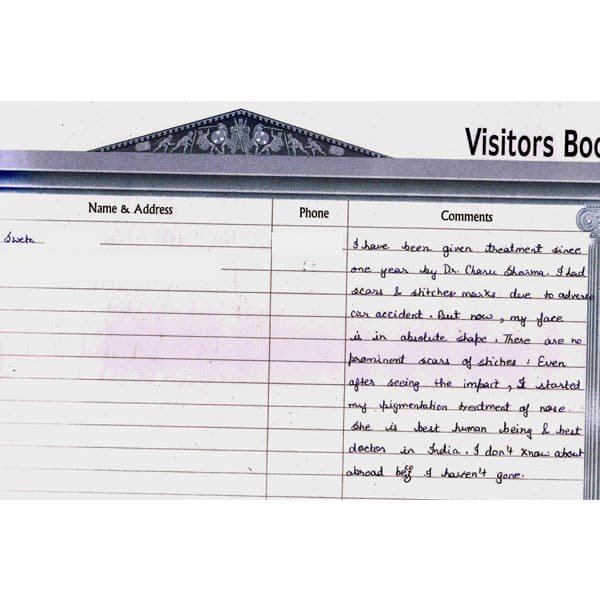 Visitors Boo
Name & Address
Phone
Comments
Sweta
I have been given treatment since
one year by Dr. Charu Sharma. I had
scars & stitches marks due to adverse
car accident. But now, my face
is in absolute shape. There are no
prominent scars of stiches. Even
after seeing the impact, I started
my pigmentation treatment of nose.
She is best human being & best
doctor in India. I don't know about
abroad I haven't gone.